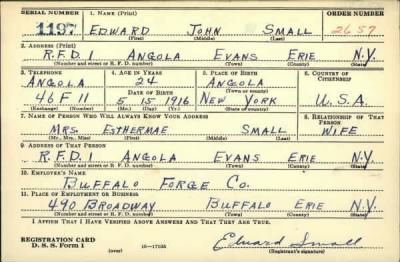 SERIAL NUMBER 1. NAME (Print) ORDER NUMBER
1197 EDWARD JOHN SMALL 2657
(First) (Middle) (Last)
2. ADDRESS (Print)
R.F.D.1 ANGOLA EVANS ERIE N.Y.
(Number and street or R. F. D. number) (Town) (County) (State)
3. TELEPHONE 4. AGE IN YEARS 5. PLACE OF BIRTH 6. COUNTRY OF CITIZENSHIP
ANGOLA 24 ANGOLA
DATE OF BIRTH (Town or county)
46F11 5 15 1916 NEW YORK U.S.A.
(Exchange) (Number) (Mo.) (Day) (Yr.) (State or country)
7. NAME OF PERSON WHO WILL ALWAYS KNOW YOUR ADDRESS 8. RELATIONSHIP OF THAT PERSON
MRS. ESTHERMAE SMALL WIFE
(Mr., Mrs., Miss) (First) (Middle) (Last)
9. ADDRESS OF THAT PERSON
R.F.D.1 ANGOLA EVANS ERIE N.Y.
(Number and street or R. F. D. number) (Town) (County) (State)
10. EMPLOYER'S NAME
BUFFALO FORGE CO.
11. PLACE OF EMPLOYMENT OR BUSINESS
490 BROADWAY BUFFALO ERIE N.Y.
(Number and street or R. F. D. number) (Town) (County) (State)
I AFFIRM THAT I HAVE VERIFIED ABOVE ANSWERS AND THAT THEY ARE TRUE.
REGISTRATION CARD
D. S. S. Form 1 (over) 16—17105 Edward Small
(Registrant's signature)